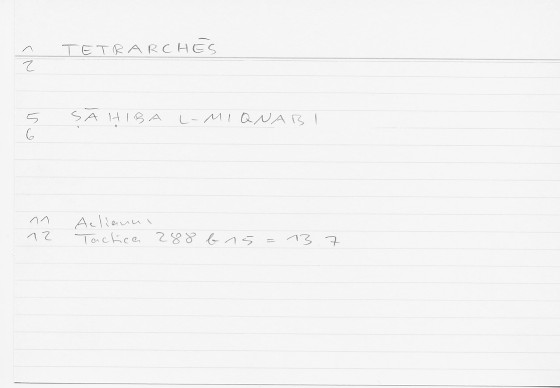 1 TETRARCHĒS
2
5 ṢĀḤIBA L-MIQNABI
6
11 Aelianus
12 Tactica 288 b 15 = 13 7